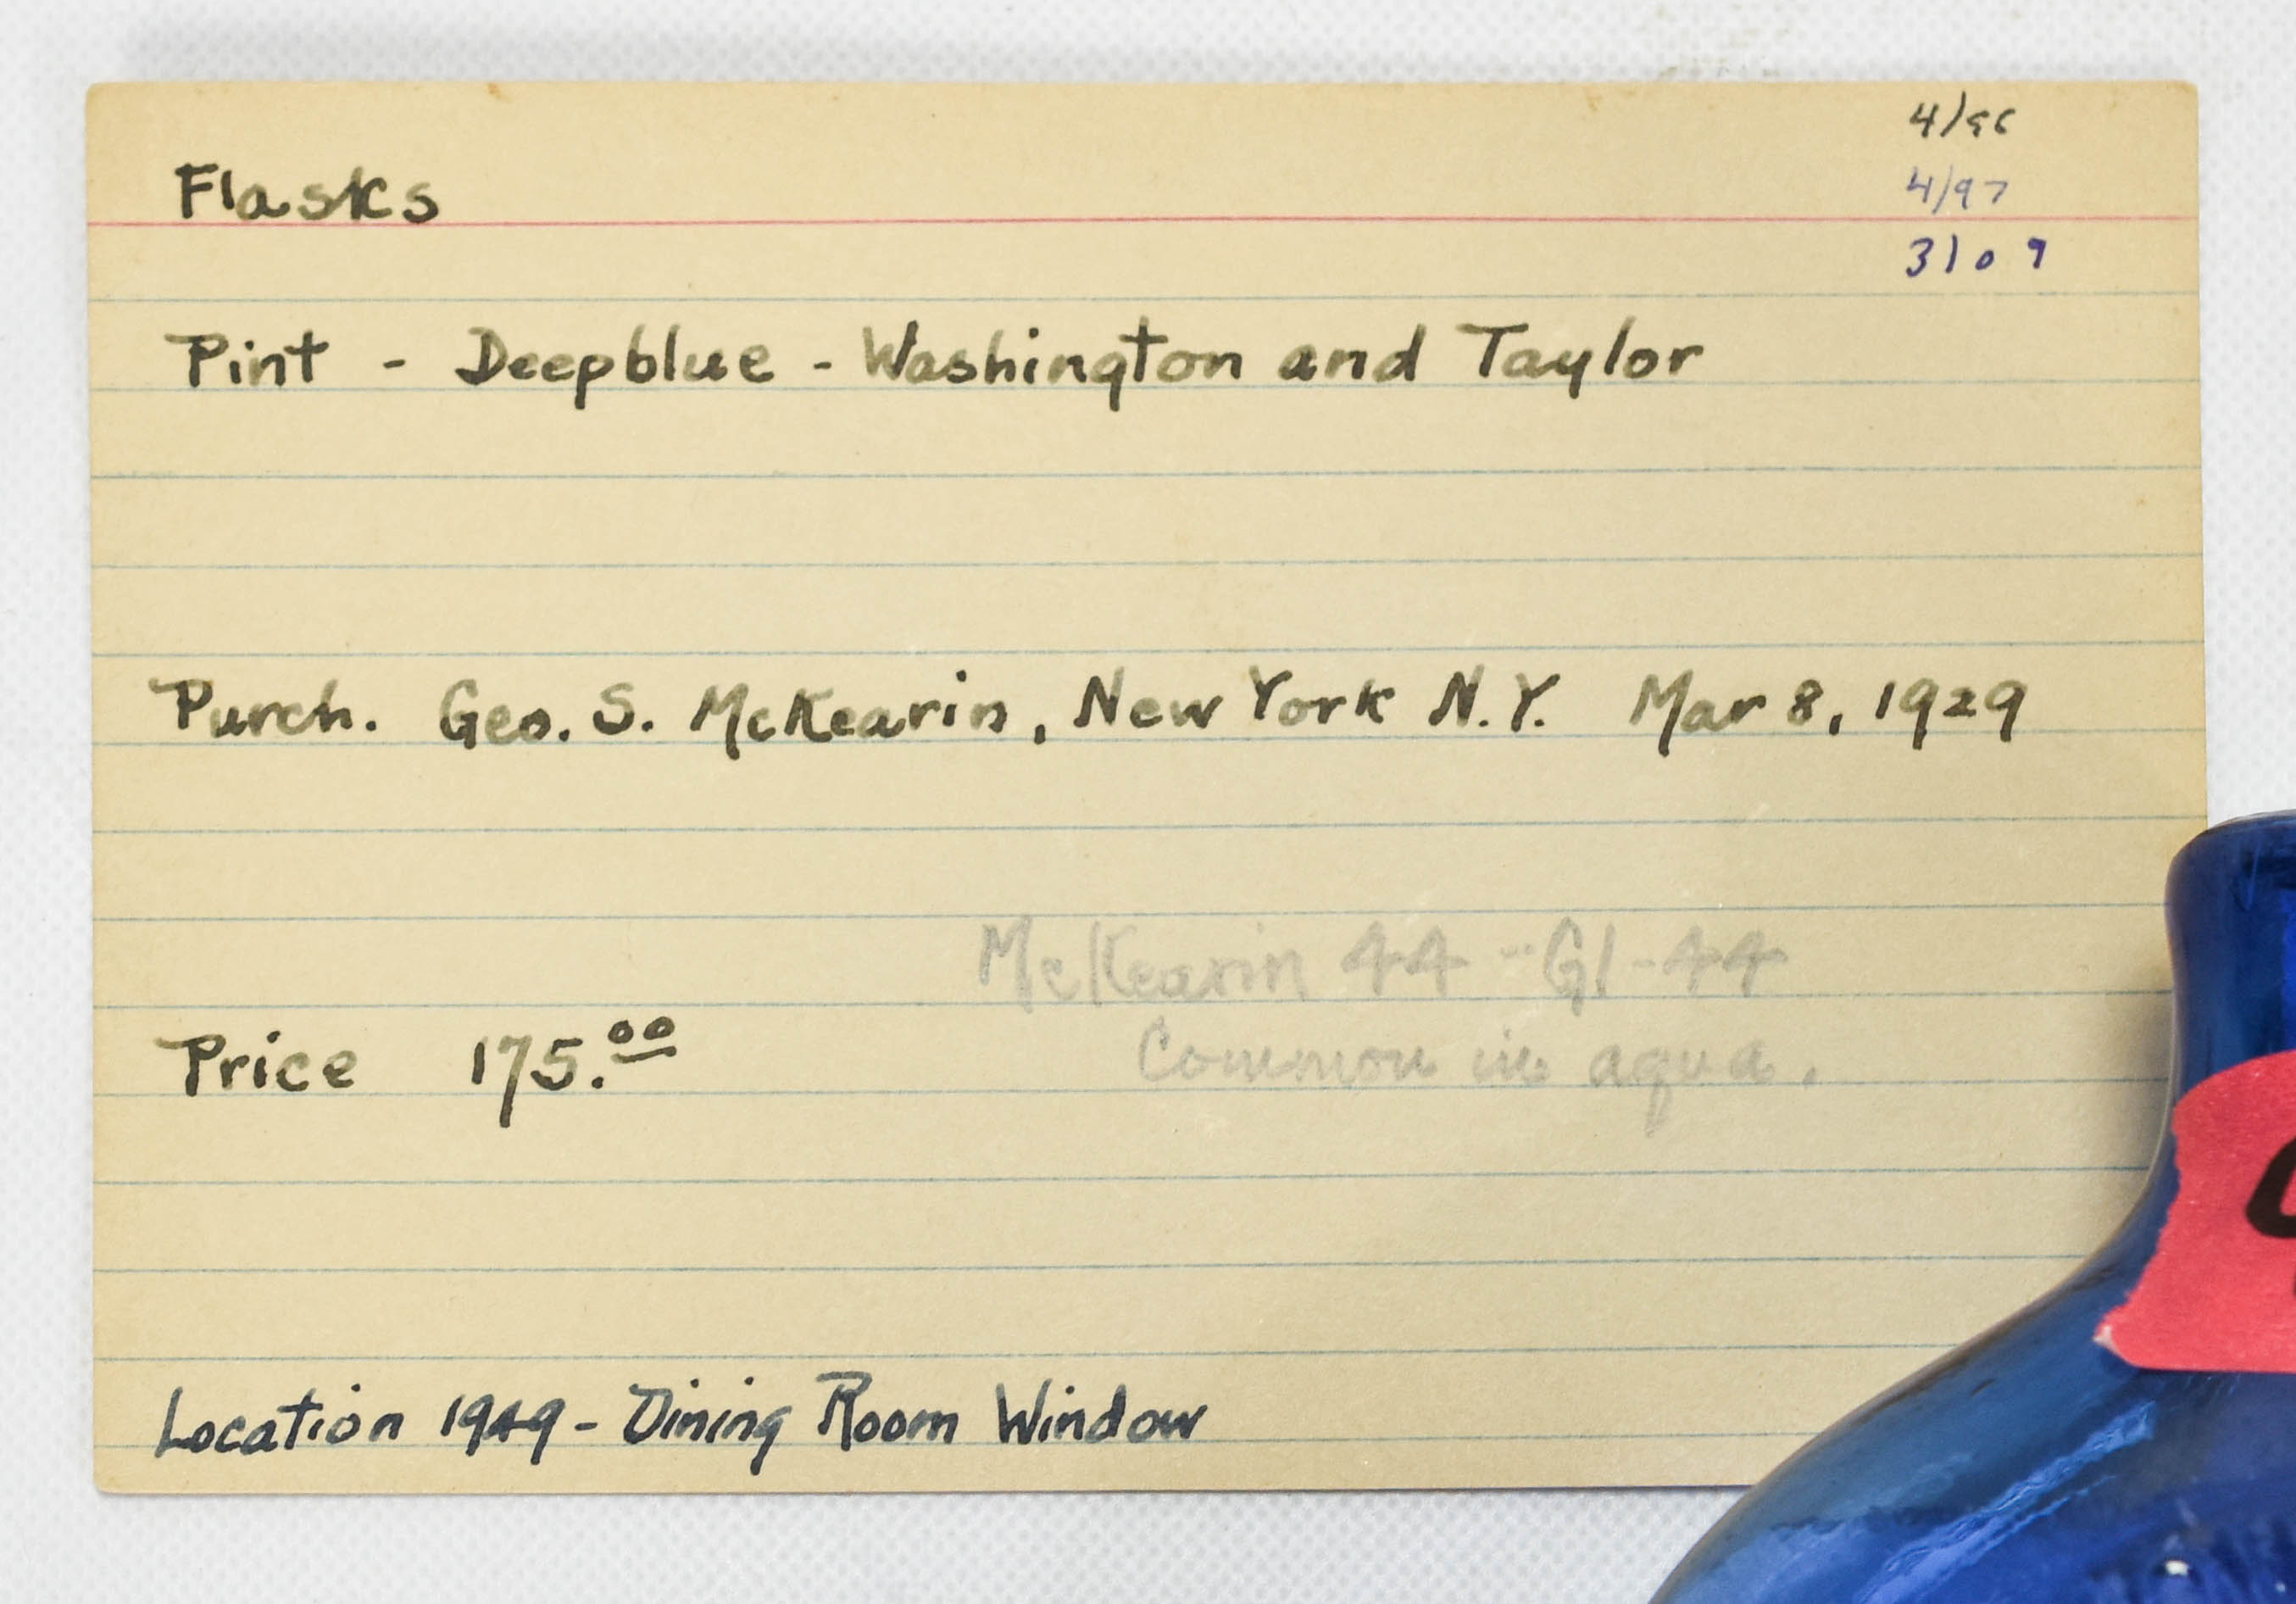 4/96
Flasks
4/97
3/09
Pint - Deep blue - Washington and Taylor
Purch. Geo. S. McKearin, New York N.Y. Mar 8, 1929
McKearin 44 - G1-44
Price 175.00
Common in aqua.
Location 1949 - Dining Room Window